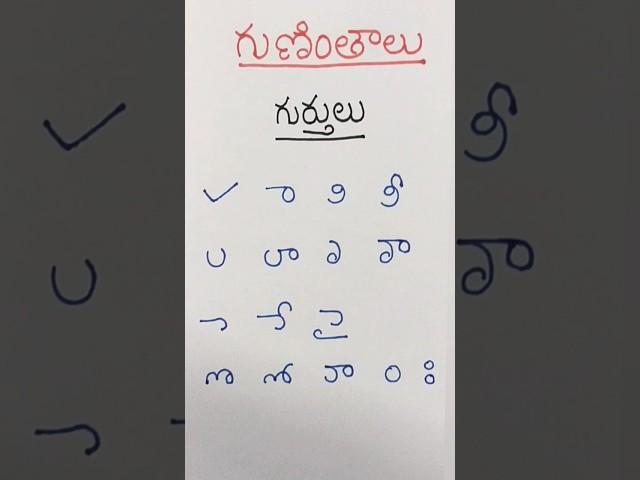 గుణింతాలు
గుర్తులు
✓ ా ి ీ
ు ూ ృ ౄ
ె ే ై
ొ ో ౌ ం ః